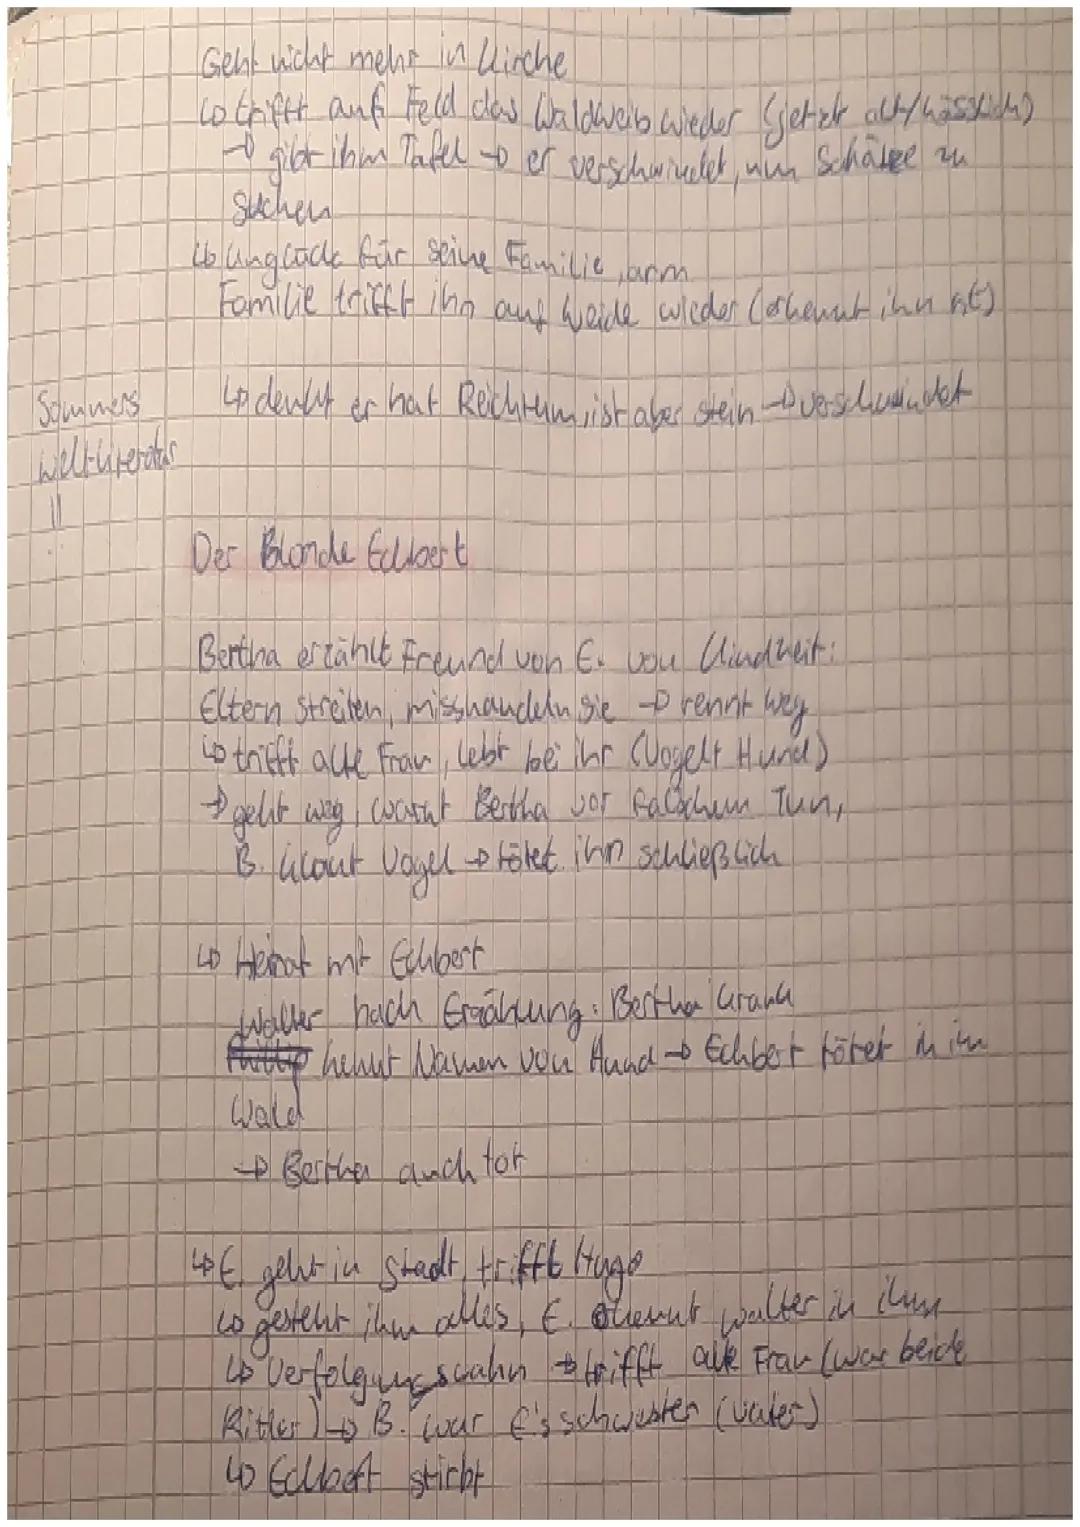 Geht nicht mehr in Kirche
↳ trifft auf Feld das Waldweib wieder (jetzt alt/hässlich)
→ gibt ihm Tafel → er verschwindet, um Schätze zu
suchen
↳ Unglück für seine Familie, arm
Familie trifft ihn auf Weide wieder (erkennt ihn nt)
Sommers
Weltliteratur
||
↳ denkt er hat Reichtum, ist aber Stein → verschwindet
Der Blonde Eckbert
Bertha erzählt Freund von E. von Kindheit:
Eltern streiten, misshandeln sie → rennt weg
↳ trifft alte Frau, lebt bei ihr (Vogel+ Hund)
→ geht weg, warnt Bertha vor falschem Tun,
B. klaut Vogel → tötet ihn schließlich
↳ Heirat mit Eckbert
Walter nach Erzählung: Bertha krank
kennt Namen von Hund → Eckbert tötet in im
Wald
→ Bertha auch tot
↳ E. geht in Stadt, trifft Hugo
↳ gesteht ihm alles, E. erkennt Walter in ihm
↳ Verfolgungswahn → trifft alte Frau (war beide
Ritter) → B. war E's schwester (Vater)
↳ Eckbert stirbt